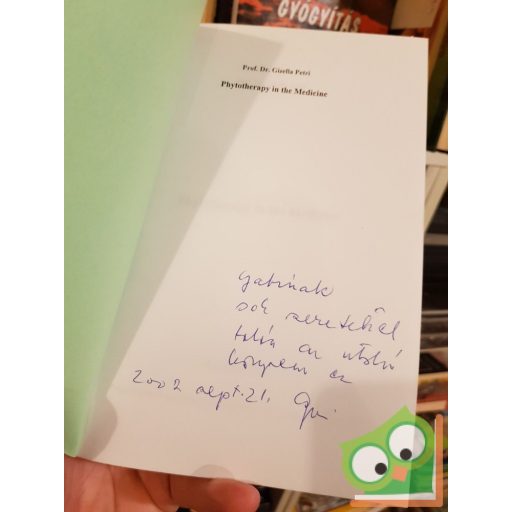 GYÓGYÍTÁS
Prof. Dr. Gizella Petri
Phytotherapy in the Medicine
Gabinak
sok szeretettel
talán az utolsó
könyvem ez
2002 sept. 21.